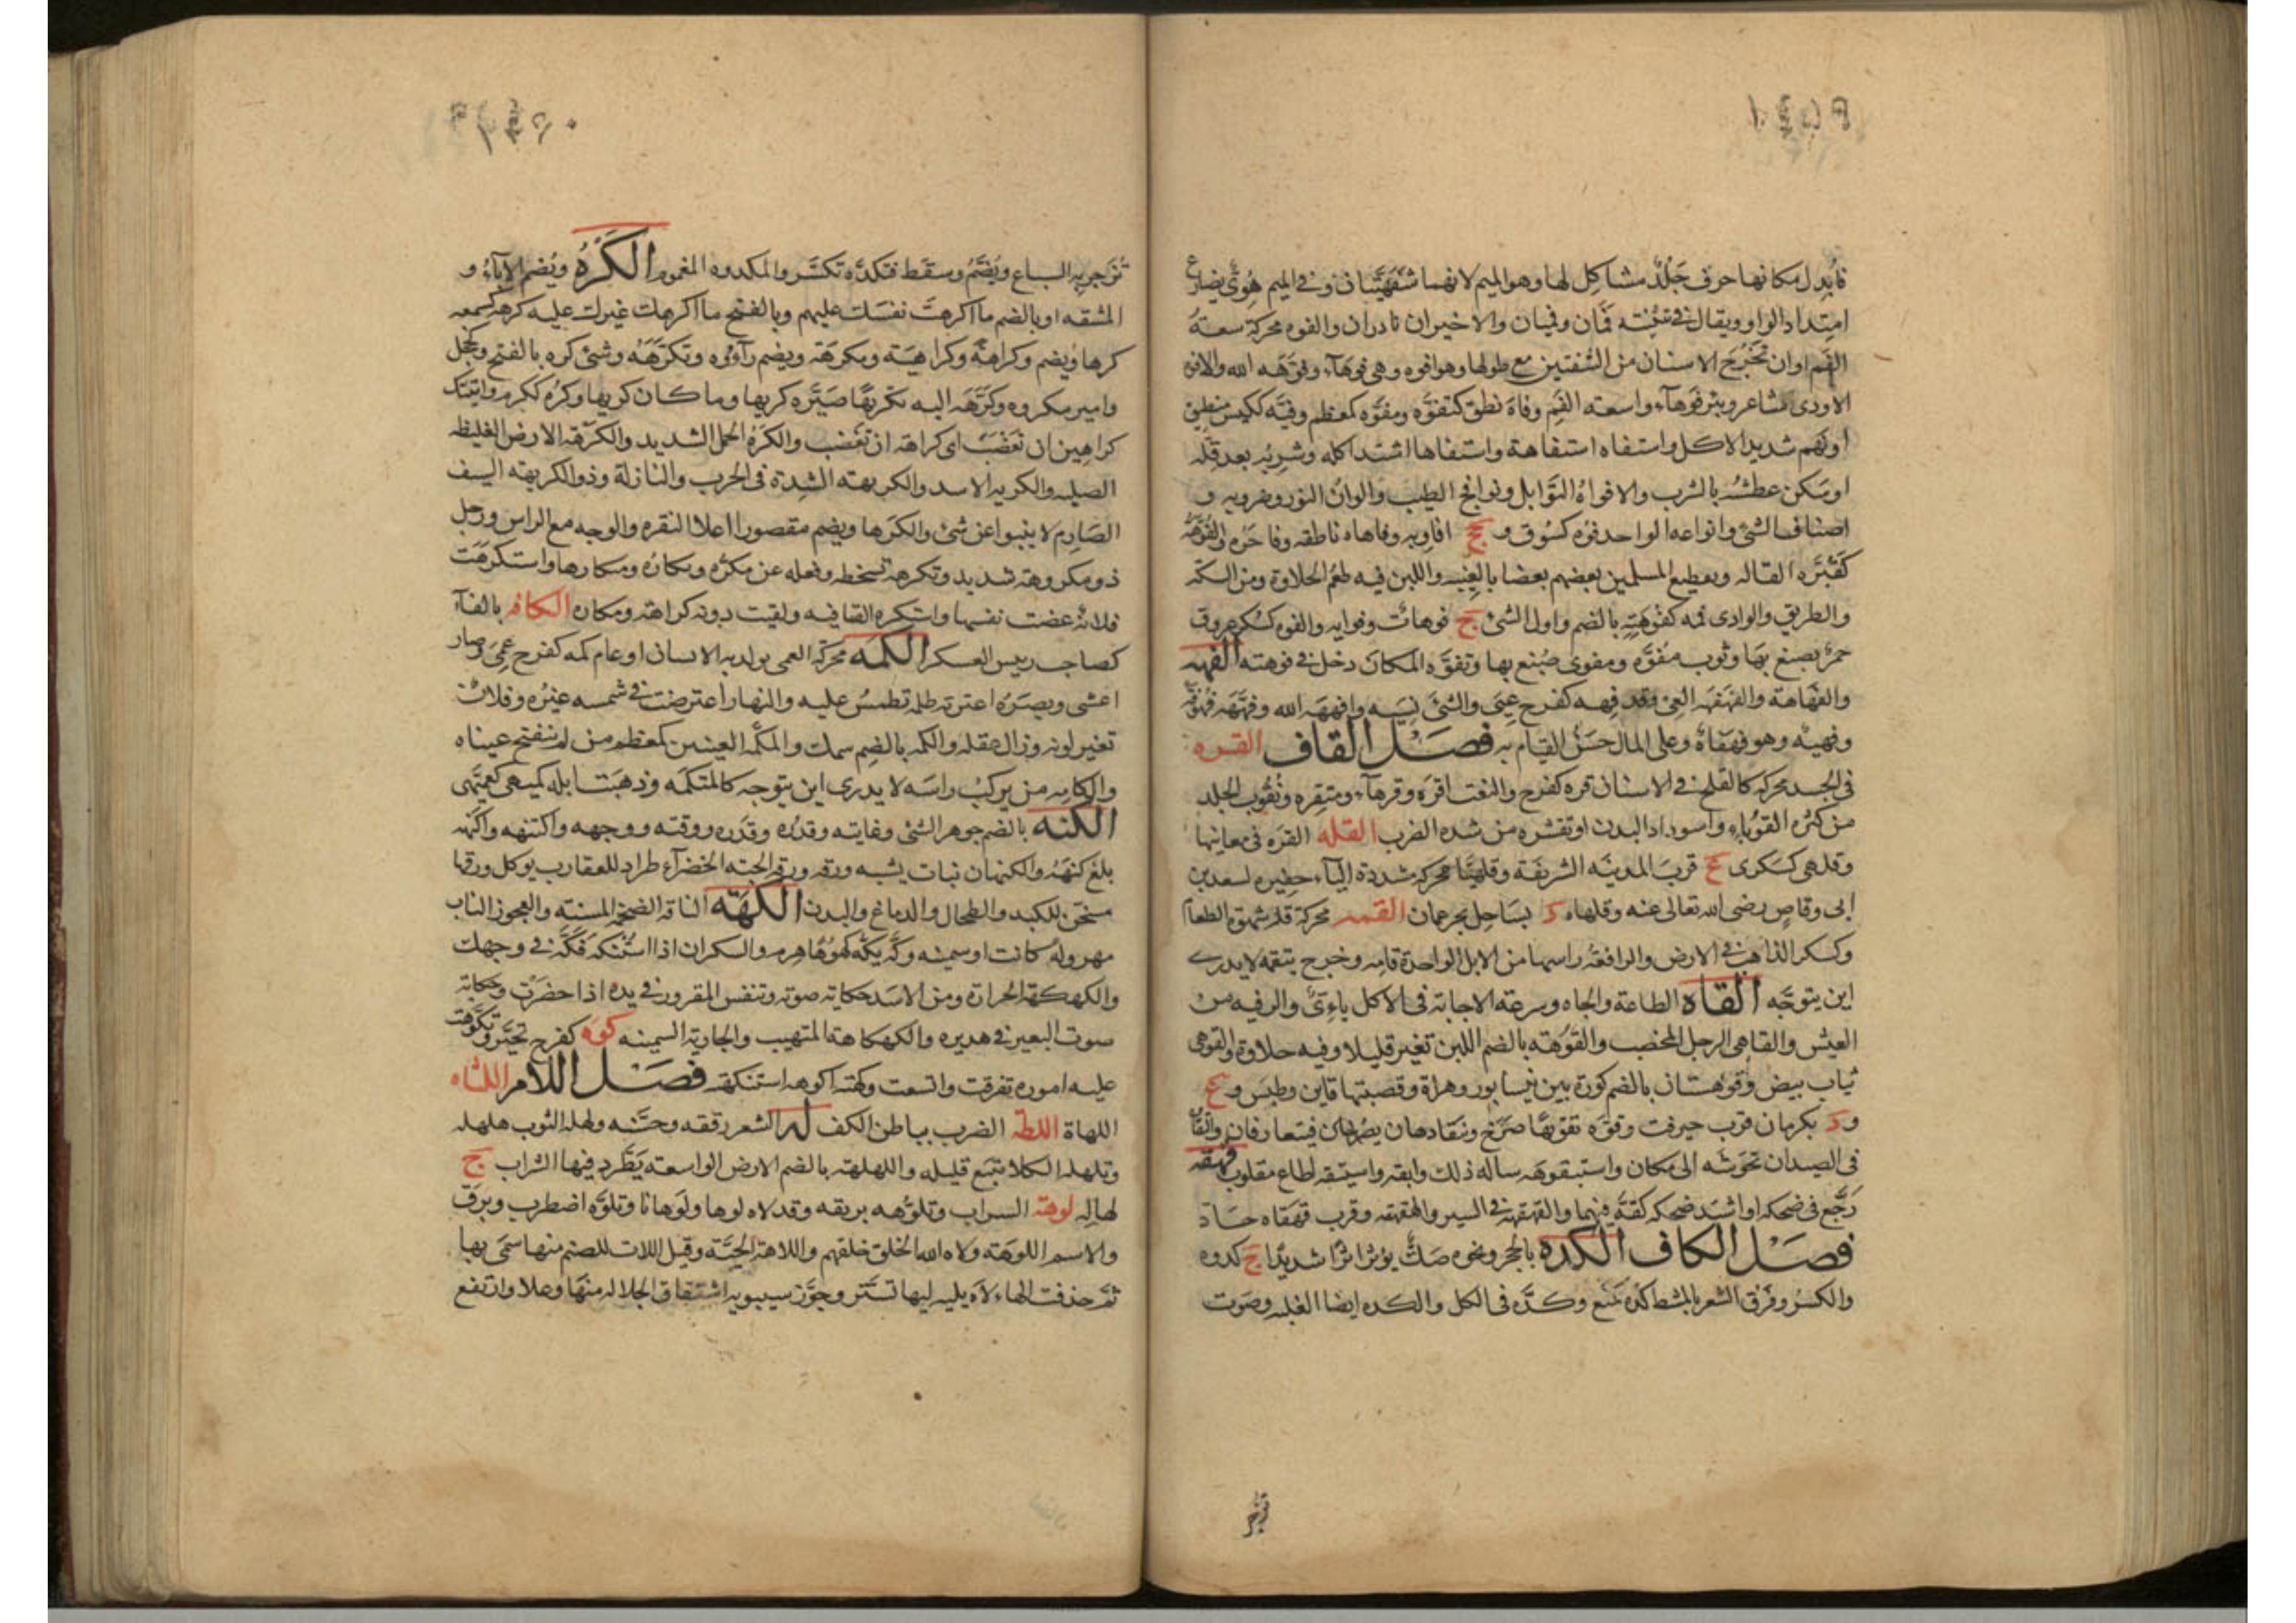 فأبدل مكانها حرف جلد مشاكل لها وهو الميم لانهما شفهيتان وفي الميم هوى يضارع
امتداد الواو ويقال في تثنيته فمان وفميان والاخيران نادران والفوه محركة سعة
الفم او ان تخرج الاسنان من الشفتين مع طولها وهو افوه وهي فوهاء وفوهه الله والافوه
الاودى شاعر وبئر فوهاء واسعة الفم وفاه نطق كتفوه ومفوه كمعظم وفيه ككيس منطيق
او نهم شديد الاكل واستفاه استفاهة واستفاها اشتد اكله وشربه بعد قلة
او سكن عطشه بالشرب والافواه التوابل ونوافج الطيب والوان النور وضروبه و
اصناف الشئ وانواعه الواحد فوه كسوق و جج افاويه وفاهاه ناطقه وفاخره والفوهة
كقبرة القالة وتقطيع المسلمين بعضهم بعضا بالغيبة واللبن فيه طعم الحلاوة ومن السكة
والطريق والوادى فمه كفوهته بالضم واول الشئ ج فوهات وفوايه والفوه كسكر عروق
حمر يصبغ بها وثوب مفوه ومفوى صبغ بها وتفوه المكان دخل في فوهته الفهه
والفهاهة والفهفهه العى وقد فهه كفرح عيى والشئ نسيه وافهه الله وفههه فهو فه
وفهيه وهو فهفاه وعلى المال حسن القيام به فصل القاف القره
في الجسد محركة كالقلح في الاسنان قره كفرح والنعت اقره وقرهاء ومتقره وتقوب الجلد
من كثرة القوباء واسوداد البدن او تقشره من شدة الضرب القله القره في معانيها
وقلهى كسكرى ع قرب المدينة الشريفة وقلهيا محركة مشددة الياء حظيرة لسعد بن
ابى وقاص رضى الله تعالى عنه وقلهاه د بساحل بحر عمان القمه محركة قلة شهوة الطعام
وكسكر الذاهب في الارض والرافعة راسها من الابل الواحدة قامه وخرج يتقمه لا يدرى
اين يتوجه القاه الطاعة والجاه وسرعة الاجابة في الاكل ياءى والرفيه من
العيش والقاهى الرجل المخصب والقوهة بالضم اللبن تغير قليلا وفيه حلاوة والقوهى
ثياب بيض وقوهستان بالضم كورة بين نيسابور وهراة وقصبتها قاين وطبس و ع
و د بكرمان قرب جيرفت وقوه تقويها صرخ ويتقاوهان يصرخان فيتعارفان والقاه
في الصيدان تحوشه الى مكان واستيقوهه ساله ذلك وايقه واستيقه اطاع مقلوب قهقه
رجع في ضحكه او اشتد ضحكه كقه فيهما والقهقهة في السير والهقهقة وقرب قهقاه حاد
فصل الكاف الكده بالحجر ونحوه صك يؤثر اثرا شديدا ج كدوه
والكسر وفرق الشعر بالمشط كده كمنع وكده في الكل والكده ايضا الغلبة وصوت
تزجر
تزجر به السباع ويضم وسقط فتكده تكسر والمكدوه المغموم الكره ويضم الاباء و
المشقة او بالضم ما اكرهت نفسك عليهم وبالفتح ما اكرهك غيرك عليه كرهه كسمعه
كرها ويضم وكراهة وكراهية ومكرهة ويضم راءه وتكرهه وشئ كره بالفتح وكخجل
وامير مكروه وكرهه اليه تكريها صيره كريها وما كان كريها وكره ككرم واتيتك
كراهين ان تغضب اى كراهة ان تغضب والكره الجمل الشديد والكرهة الارض الغليظة
الصلبة والكريه الاسد والكريهة الشدة في الحرب والنازلة وذو الكريهة السيف
الصارم لا ينبو عن شئ والكرها ويضم مقصورا اعلا النقرة والوجه مع الراس ورجل
ذو مكروهة شديد وتكرهه تسخطه وفعله عن مكره ومكاره ومكارها واستكرهت
فلانة غضت نفسها واستكره القافية ولقيت دونه كراهة ومكان الكافه بالفاء
كصاحب رييس العسكر الكمه محركة العمى يولد به الانسان او عام كمه كفرح عمى وصار
اعشى وبصره اعترته ظلمة تطمس عليه والنهار اعترضت في شمسه غبرة وفلان
تغير لونه وزال عقله والكمه بالضم سمك والمكمه العينين كمعظم من لم تنفتح عيناه
والكامه من يركب راسه لا يدرى اين يتوجه كالمتكمه وذهبت ابله كميهى كعميهى
الكنه بالضم جوهر الشئ وغايته وقدره وقدره ووقته ووجهه واكتنهه واكنهه
بلغ كنهه والكنهان نبات يشبه ورقه ورق الحبة الخضراء طراد للعقارب يوكل ورقها
مسخن للكبد والطحال والدماغ والبدن الكهه الناقة الضخمة المسنة والعجوز الناب
مهزولة كانت او سمينة وكه يكه كهوها هرم والسكران اذا استنكه فكه في وجهك
والكهكهة الحرارة ومن الاسد حكاية صوته وتنفس المقرور في يده اذا خصرت وحكاية
صوت البعير في هديره والكهكاهة المتهيب والجارية السمينة كوه كفرح تحير وتكوهت
عليه اموره تفرقت واتسعت وكهته اكوهه استنكهته فصل اللام اللثاه
اللهاة اللطه الضرب بباطن الكف له الشعر رققه وحسنه ولهله الثوب هلهله
وتلهله الكلا تتبع قليله واللهلهة بالضم الارض الواسعة يطرد فيها السراب ج
لهاله لوهة السراب وتلوهه بريقه وقد لاه لوها ولوهانا وتلوه اضطرب وبرق
والاسم اللوهة ولاه الله الخلق خلقهم واللاهة الحية وقيل اللات للصنم منها سمى بها
ثم حذفت الهاء لاه يليه ليها تستر وجوز سيبويه اشتقاق الجلالة منها وعلا وارتفع